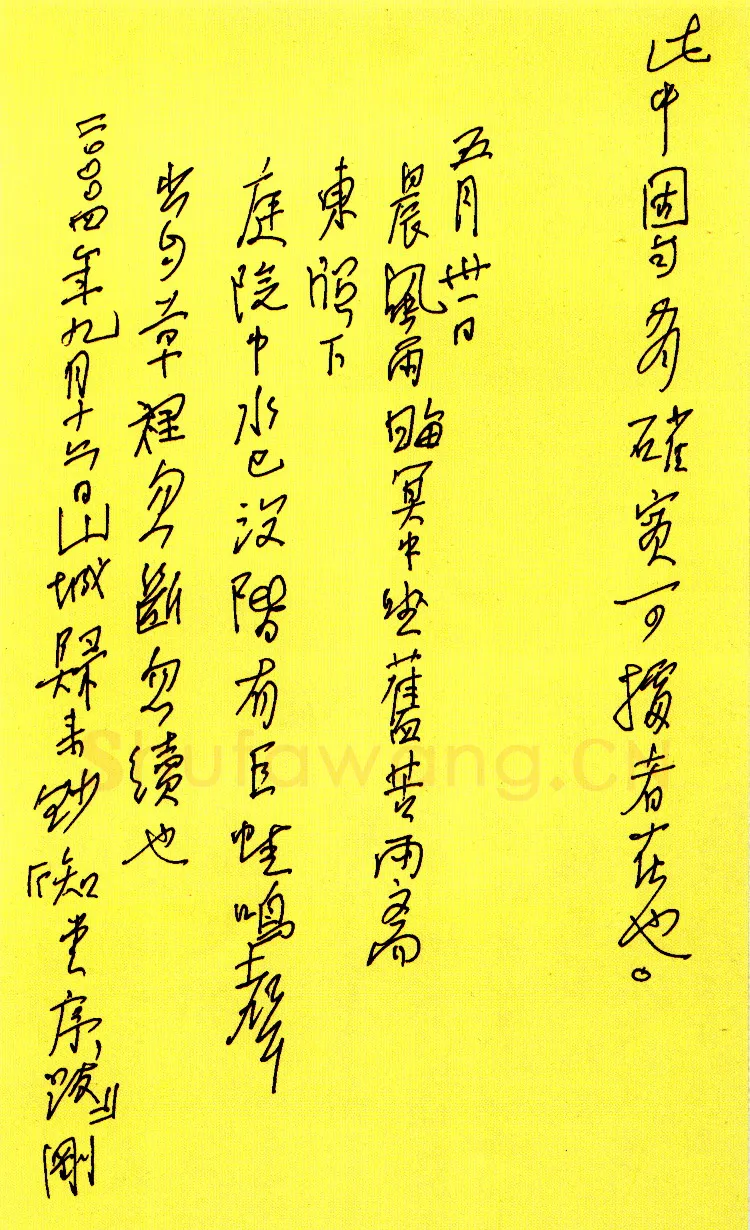 此中固自有確實可據者在也。
五月卅一日
晨風雨晦冥中坐舊苦雨齋
東牕下
庭院中水已没階有巨蛙鳴聲
出自草裡忽斷忽續也
二〇〇四年九月十六日山城歸來鈔『知堂序跋』剛
Shufawang.CN